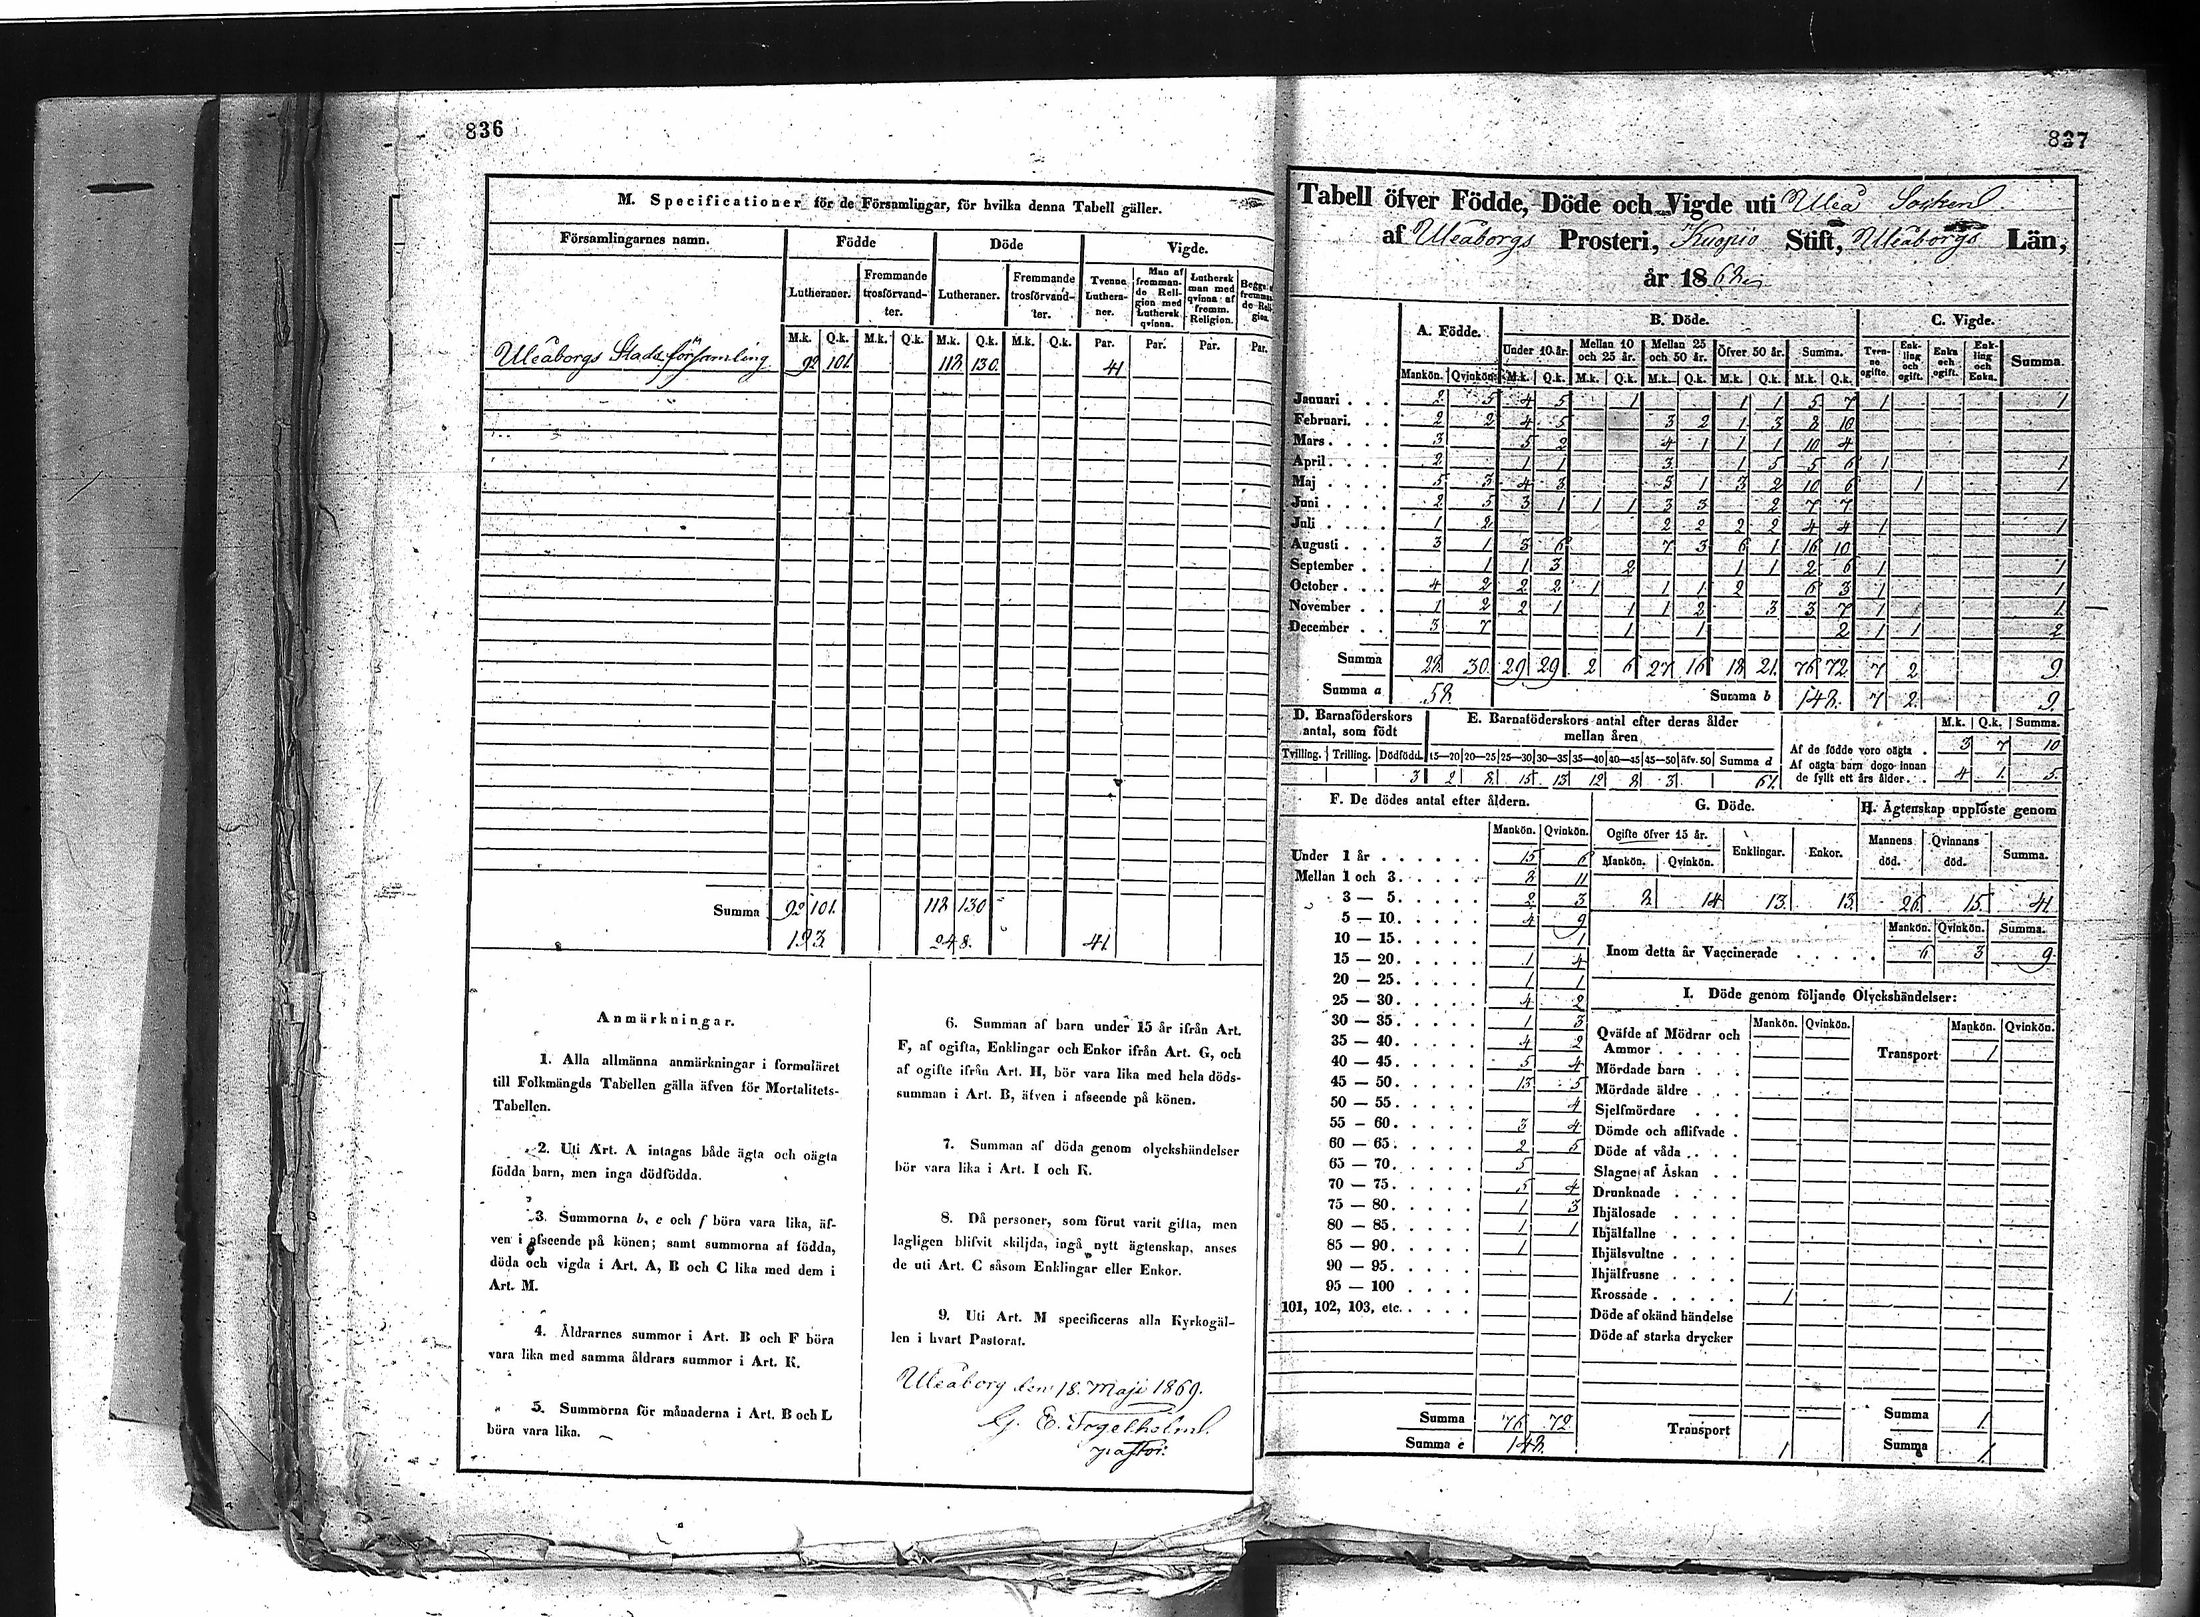 836
M. Specificationer för de Församlingar, för hvilka denna Tabell gäller.
Församlingarnes namn. Födde Döde Vigde.
Lutheraner. Fremmande trosförvandter. Lutheraner. Fremmande trosförvandter. Tvenne Lutheraner. Man af fremmande Religion med Luthersk qvinna. Luthersk man med qvinna af fremm. Religion.
M.k. Q.k. M.k. Q.k. M.k. Q.k. M.k. Q.k. Par. Par. Par. Par.
Uleåborgs Stads församling 92 101. 118 130. 41
Summa 92 101. 118 130
193. 248. 41.
Anmärkningar.
1. Alla allmänna anmärkningar i formuläret
till Folkmängds Tabellen gälla äfven för Mortalitets-
Tabellen.
2. Uti Art. A intagas både ägta och oägta
födda barn, men inga dödfödda.
3. Summorna b, e och f böra vara lika, äf-
ven i afseende på könen; samt summorna af födda,
döda och vigda i Art. A, B och C lika med dem i
Art. M.
4. Åldrarnes summor i Art. B och F böra
vara lika med samma åldrars summor i Art. K.
5. Summorna för månaderna i Art. B och L
böra vara lika.
6. Summan af barn under 15 år ifrån Art.
F, af ogifta, Enklingar och Enkor ifrån Art. G, och
af ogifte ifrån Art. H, bör vara lika med hela döds-
summan i Art. B, äfven i afseende på könen.
7. Summan af döda genom olyckshändelser
bör vara lika i Art. I och K.
8. Då personer, som förut varit gifta, men
lagligen blifvit skiljda, ingå nytt ägtenskap, anses
de uti Art. C såsom Enklingar eller Enkor.
9. Uti Art. M specificeras alla Kyrkogäl-
len i hvart Pastorat.
Uleåborg den 18. Maji 1869.
G. E. Fogelholm.
pastor.
837
Tabell öfver Födde, Döde och Vigde uti Uleå Socken
af Uleåborgs Prosteri, Kuopio Stift, Uleåborgs Län,
år 1868
A. Födde. B. Döde. C. Vigde.
Under 10 år. Mellan 10 och 25 år. Mellan 25 och 50 år. Öfver 50 år. Summa. Tvenne ogifte. Enkling och ogift. Enka och ogift. Enkling och Enka. Summa.
Mankön. Qvinkön. M.k. Q.k. M.k. Q.k. M.k. Q.k. M.k. Q.k. M.k. Q.k.
Januari . . . 2 5 4 5 1 1 1 5 7 1 1
Februari. . . 2 2 4 5 3 2 1 3 8 10
Mars . . . . 3 5 2 4 1 1 1 10 4
April. . . . 2 1 1 3 1 5 5 6 1 1
Maj . . . . 5 3 4 3 3 1 3 2 10 6 1 1
Juni . . . . 2 5 3 1 1 1 3 3 2 7 7
Juli . . . . 1 2 2 2 2 2 4 4 1 1
Augusti . . . 3 1 3 6 7 3 6 1 16 10
September . . 1 1 3 2 1 1 2 6 1 1
October . . . 4 2 2 2 1 1 1 2 6 3 1 1
November . . 1 2 2 1 1 1 2 3 3 7 1 1
December . . 3 7 1 1 2 1 1 2
Summa 28 30. 29 29 2 6 27 16 18 21. 76 72. 7 2 9.
Summa a 58. Summa b 148. 7 2. 9.
D. Barnaföderskors antal, som födt
E. Barnaföderskors antal efter deras ålder mellan åren
Tvilling. Trilling. Dödfödd. 15—20 20—25 25—30 30—35 35—40 40—45 45—50 öfv. 50 Summa d
3 2 8 15 13 12 8 3 61.
M.k. Q.k. Summa.
Af de födde voro oägta . 3 7 10
Af oägta barn dogo innan
de fyllt ett års ålder . . 4 1. 5.
F. De dödes antal efter åldern.
Mankön. Qvinkön.
Under 1 år . . . . . . 15 6
Mellan 1 och 3. . . . . 8 11
3 — 5. . . . . 2 3
5 — 10. . . . . 4 9
10 — 15. . . . . 1
15 — 20. . . . . 1 4
20 — 25. . . . . 1 1
25 — 30. . . . . 4 2
30 — 35. . . . . 1 3
35 — 40. . . . . 4 2
40 — 45. . . . . 5 4
45 — 50. . . . . 13 5
50 — 55. . . . . 4
55 — 60. . . . . 3 4
60 — 65. . . . . 2 5
65 — 70. . . . . 5
70 — 75. . . . . 5 4
75 — 80. . . . . 1 3
80 — 85. . . . . 1 1
85 — 90. . . . . 1
90 — 95. . . . .
95 — 100 . . . .
101, 102, 103, etc. . . . .
Summa 76 72.
Summa e 148.
G. Döde.
Ogifte öfver 15 år. Enklingar. Enkor.
Mankön. Qvinkön.
2 14 13. 13.
H. Ägtenskap upplöste genom
Mannens död. Qvinnans död. Summa.
26 15 41
Mankön. Qvinkön. Summa.
Inom detta år Vaccinerade . . . . . 6 3 9
I. Döde genom följande Olyckshändelser:
Mankön. Qvinkön. Mankön. Qvinkön.
Qväfde af Mödrar och
Ammor . . . . . Transport 1
Mördade barn . . .
Mördade äldre . . .
Sjelfmördare . . .
Dömde och aflifvade .
Döde af våda . . . .
Slagne af Åskan . .
Drunknade . . . .
Ihjälosade . . . .
Ihjälfallne . . . .
Ihjälsvultne . . . .
Ihjälfrusne . . . .
Krossade . . . . . 1
Döde af okänd händelse
Döde af starka drycker
Transport 1
Summa 1.
Summa 1.